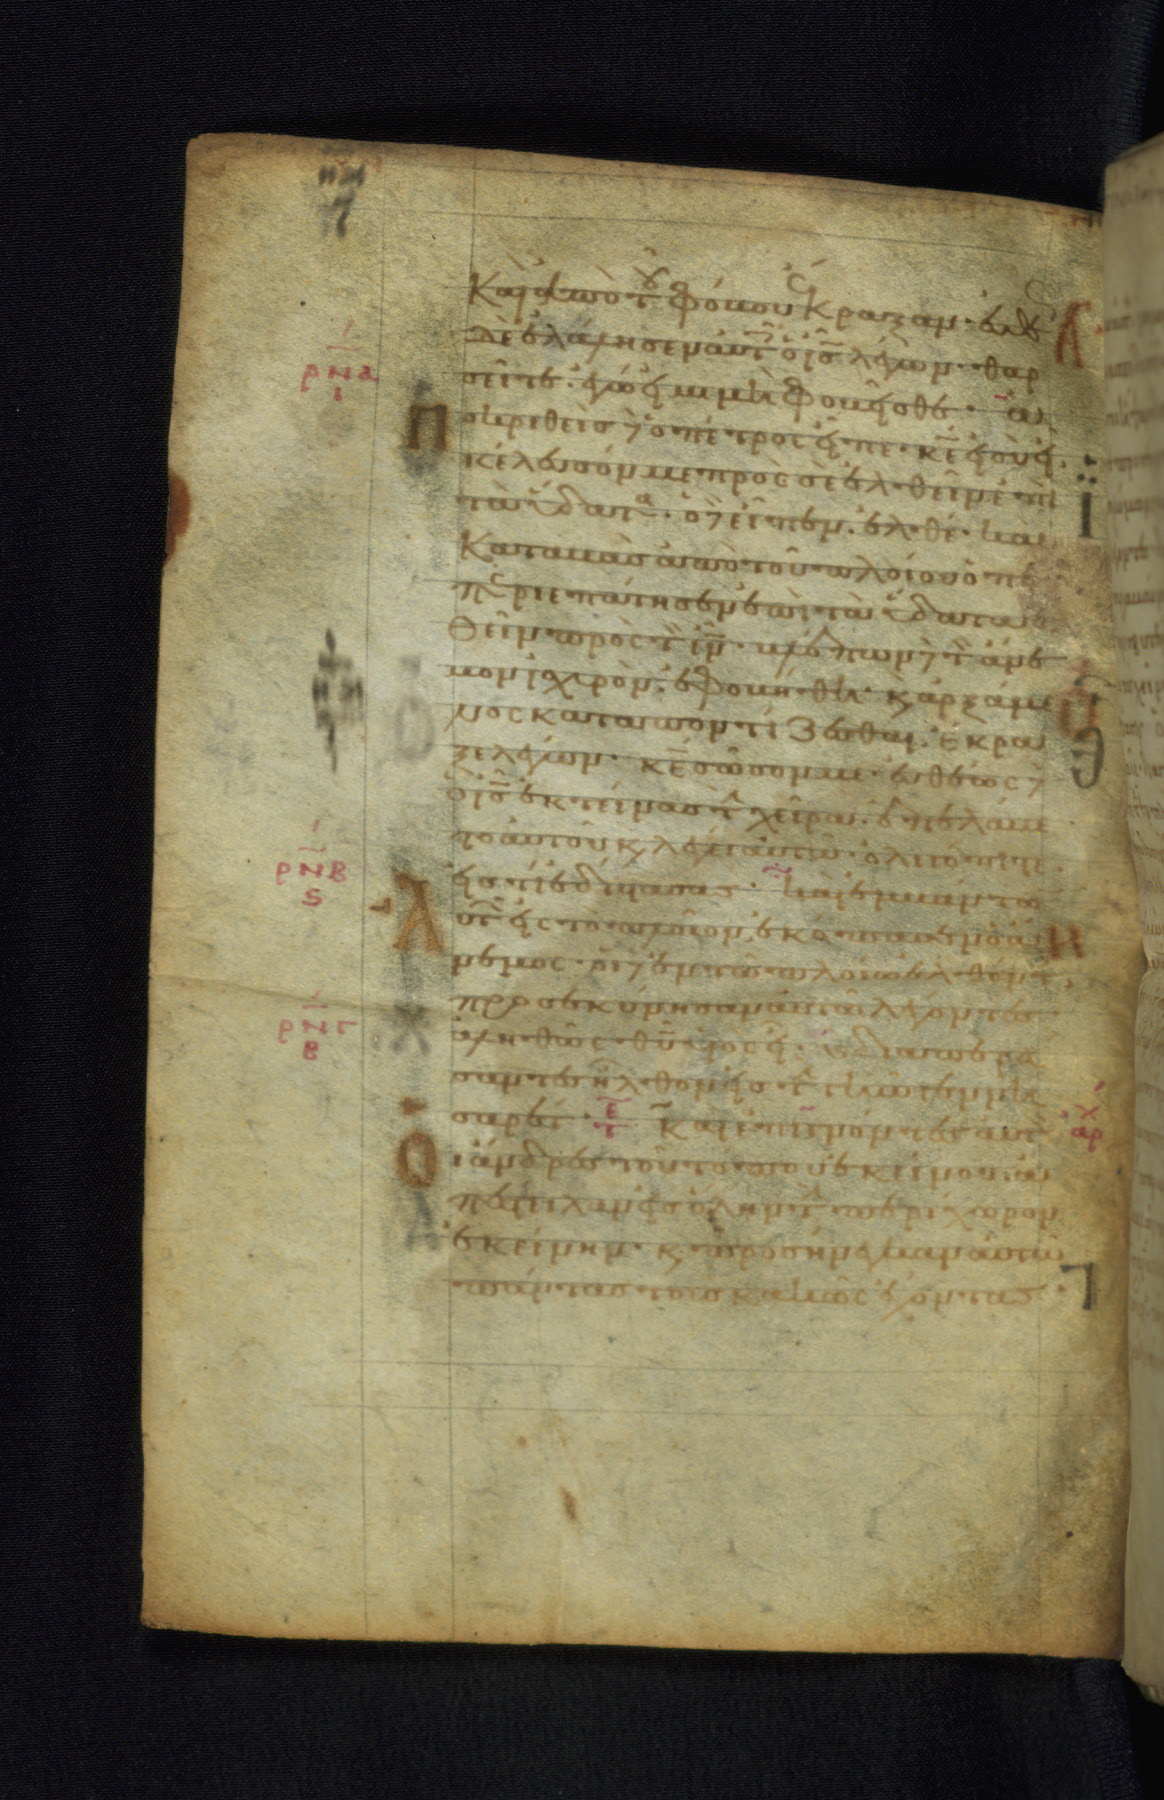 Καὶ ἀπὸ τ φόβου ἔκραξαν· ευθ
δὲ ἐλάλησεν αὐτ ὁ ι̅ς̅ λέγων· θαρ
σεῖτε· ἐγώ εἰμι μὴ φοβεῖσθε· ἀ
ποκριθεὶς δ ὁ πέτρος εἶπε· κ̅ε̅ εἰ σὺ εἶ
κέλευσόν με πρὸς σὲ ἐλθεῖν ἐπὶ
τὰ ὕδατα· ὁ δ εἶπεν· ἐλθέ· καὶ
Καταβὰς ἀπὸ τοῦ πλοίου ὁ πέ
τρς περιεπάτησεν ἐπὶ τὰ ὕδατα
ἐλθεῖν πρὸς τ ι̅ν̅· βλέπων δ τ ἄνε
μον ἰσχυρὸν· ἐφοβήθη· κ ἀρξάμε
νος καταποντίζεσθαι· ἔκρα
ξε λέγων· κ̅ε̅ σῶσόν με· εὐθέως δ
ὁ ι̅ς̅ ἐκτείνας τ χεῖρα· ἐπελάβε
το αὐτοῦ κ λέγει αὐτῶ· ὀλιγόπιστε
εἰς τί ἐδίστασας· καὶ ἐμβάντω
αυτ εἰς τὸ πλοῖον, ἐκόπασεν ὁ ἄ
νεμος· οἱ δ ἐν τῶ πλοίω ἐλθόντ
προσεκύνησαν αὐτῶ λέγοντες
ἀληθῶς θ̅υ̅ υἱὸς εἶ· κ διαπερά
σαντες ἦλθον εἰς τ γῆν γεννη
σαρέτ· Καὶ ἐπιγνόντες αὐτ
οἱ ἄνδρες τοῦ τόπου ἐκείνου· ἀ
πέστειλαν εἰς ὅλην τ περίχωρον
ἐκείνην· κ προσήνεγκαν αὐτῶ
πάντας τοὺς κακῶς ἔχοντας·
ρνα
ι
ρνβ
ς
ρνγ
β